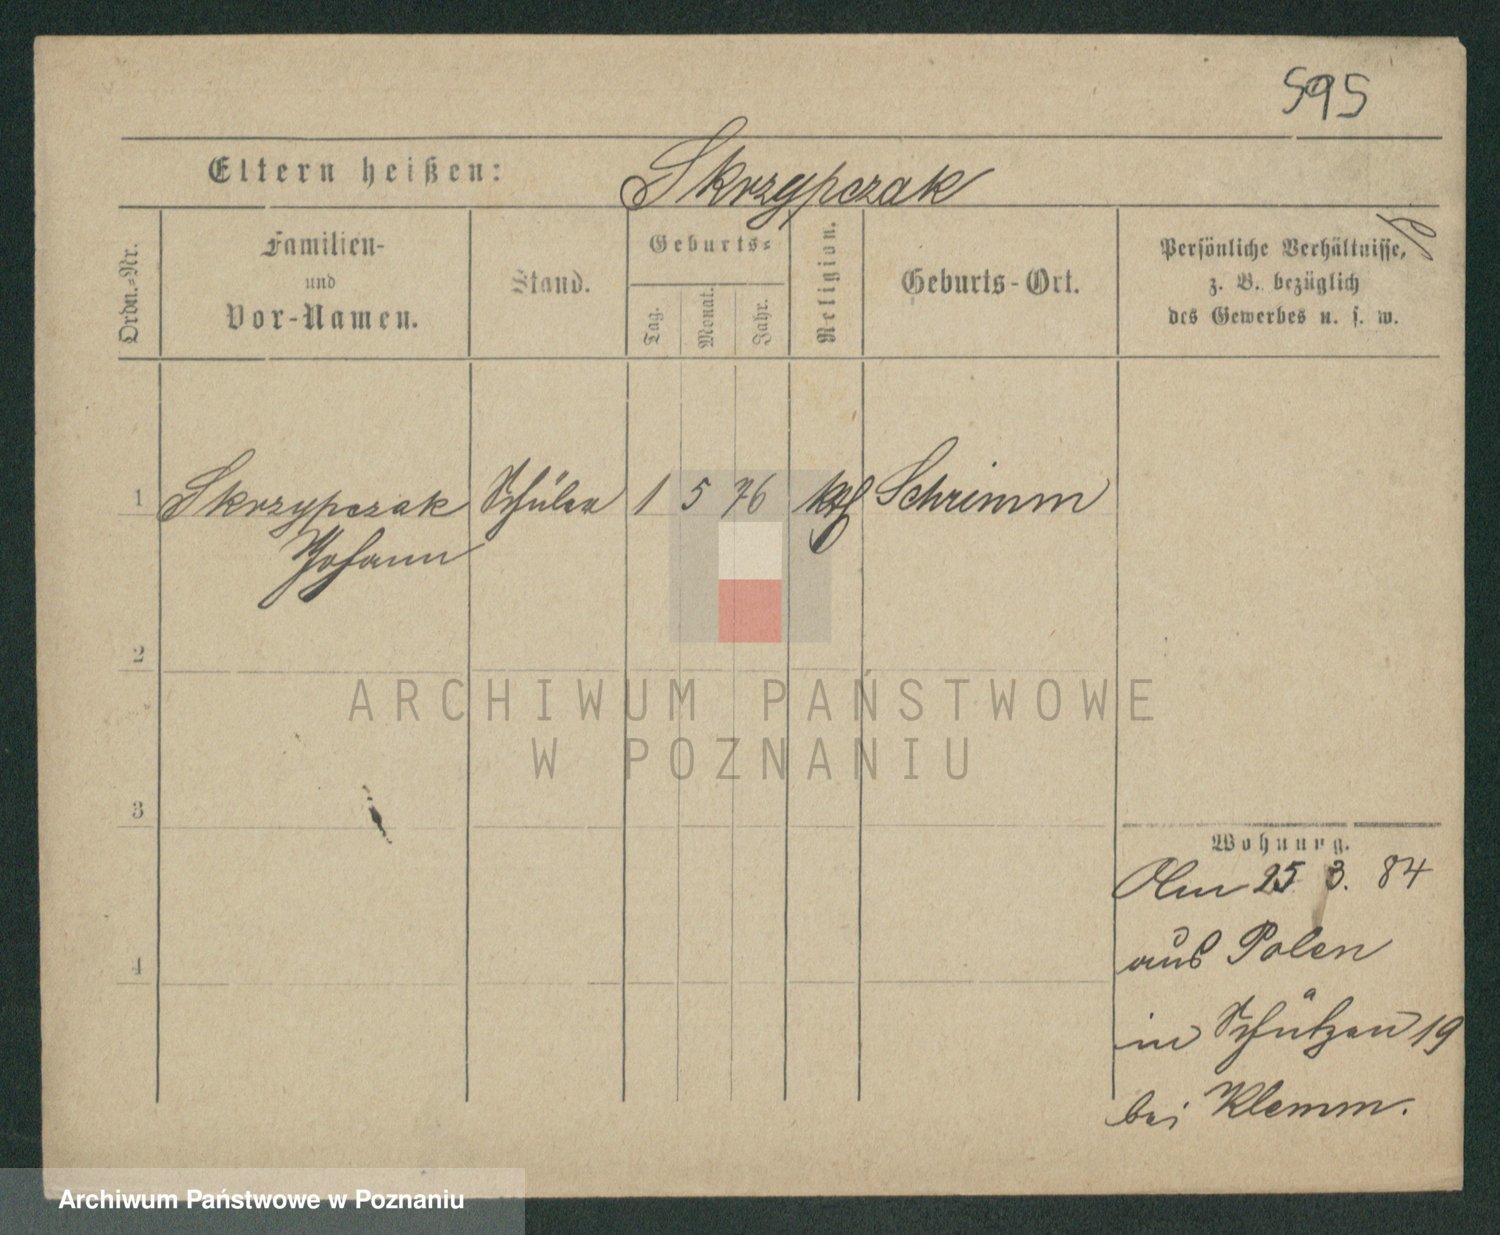 595
Eltern heißen: Skrzypczak
Ordn.-Nr.
Familien-
und
Vor-Namen.
Stand.
Geburts-
Tag.
Monat.
Jahr.
Religion.
Geburts-Ort.
Persönliche Verhältnisse,
z. B. bezüglich
des Gewerbes u. s. w.
1 Skrzypczak Schüler 1 5 76 kth Schrimm
Johann
2
3
4
Wohnung.
25 3. 84
aus Polen
in Schützen 19
bei Klemm.
ARCHIWUM PAŃSTWOWE
W POZNANIU
Archiwum Państwowe w Poznaniu